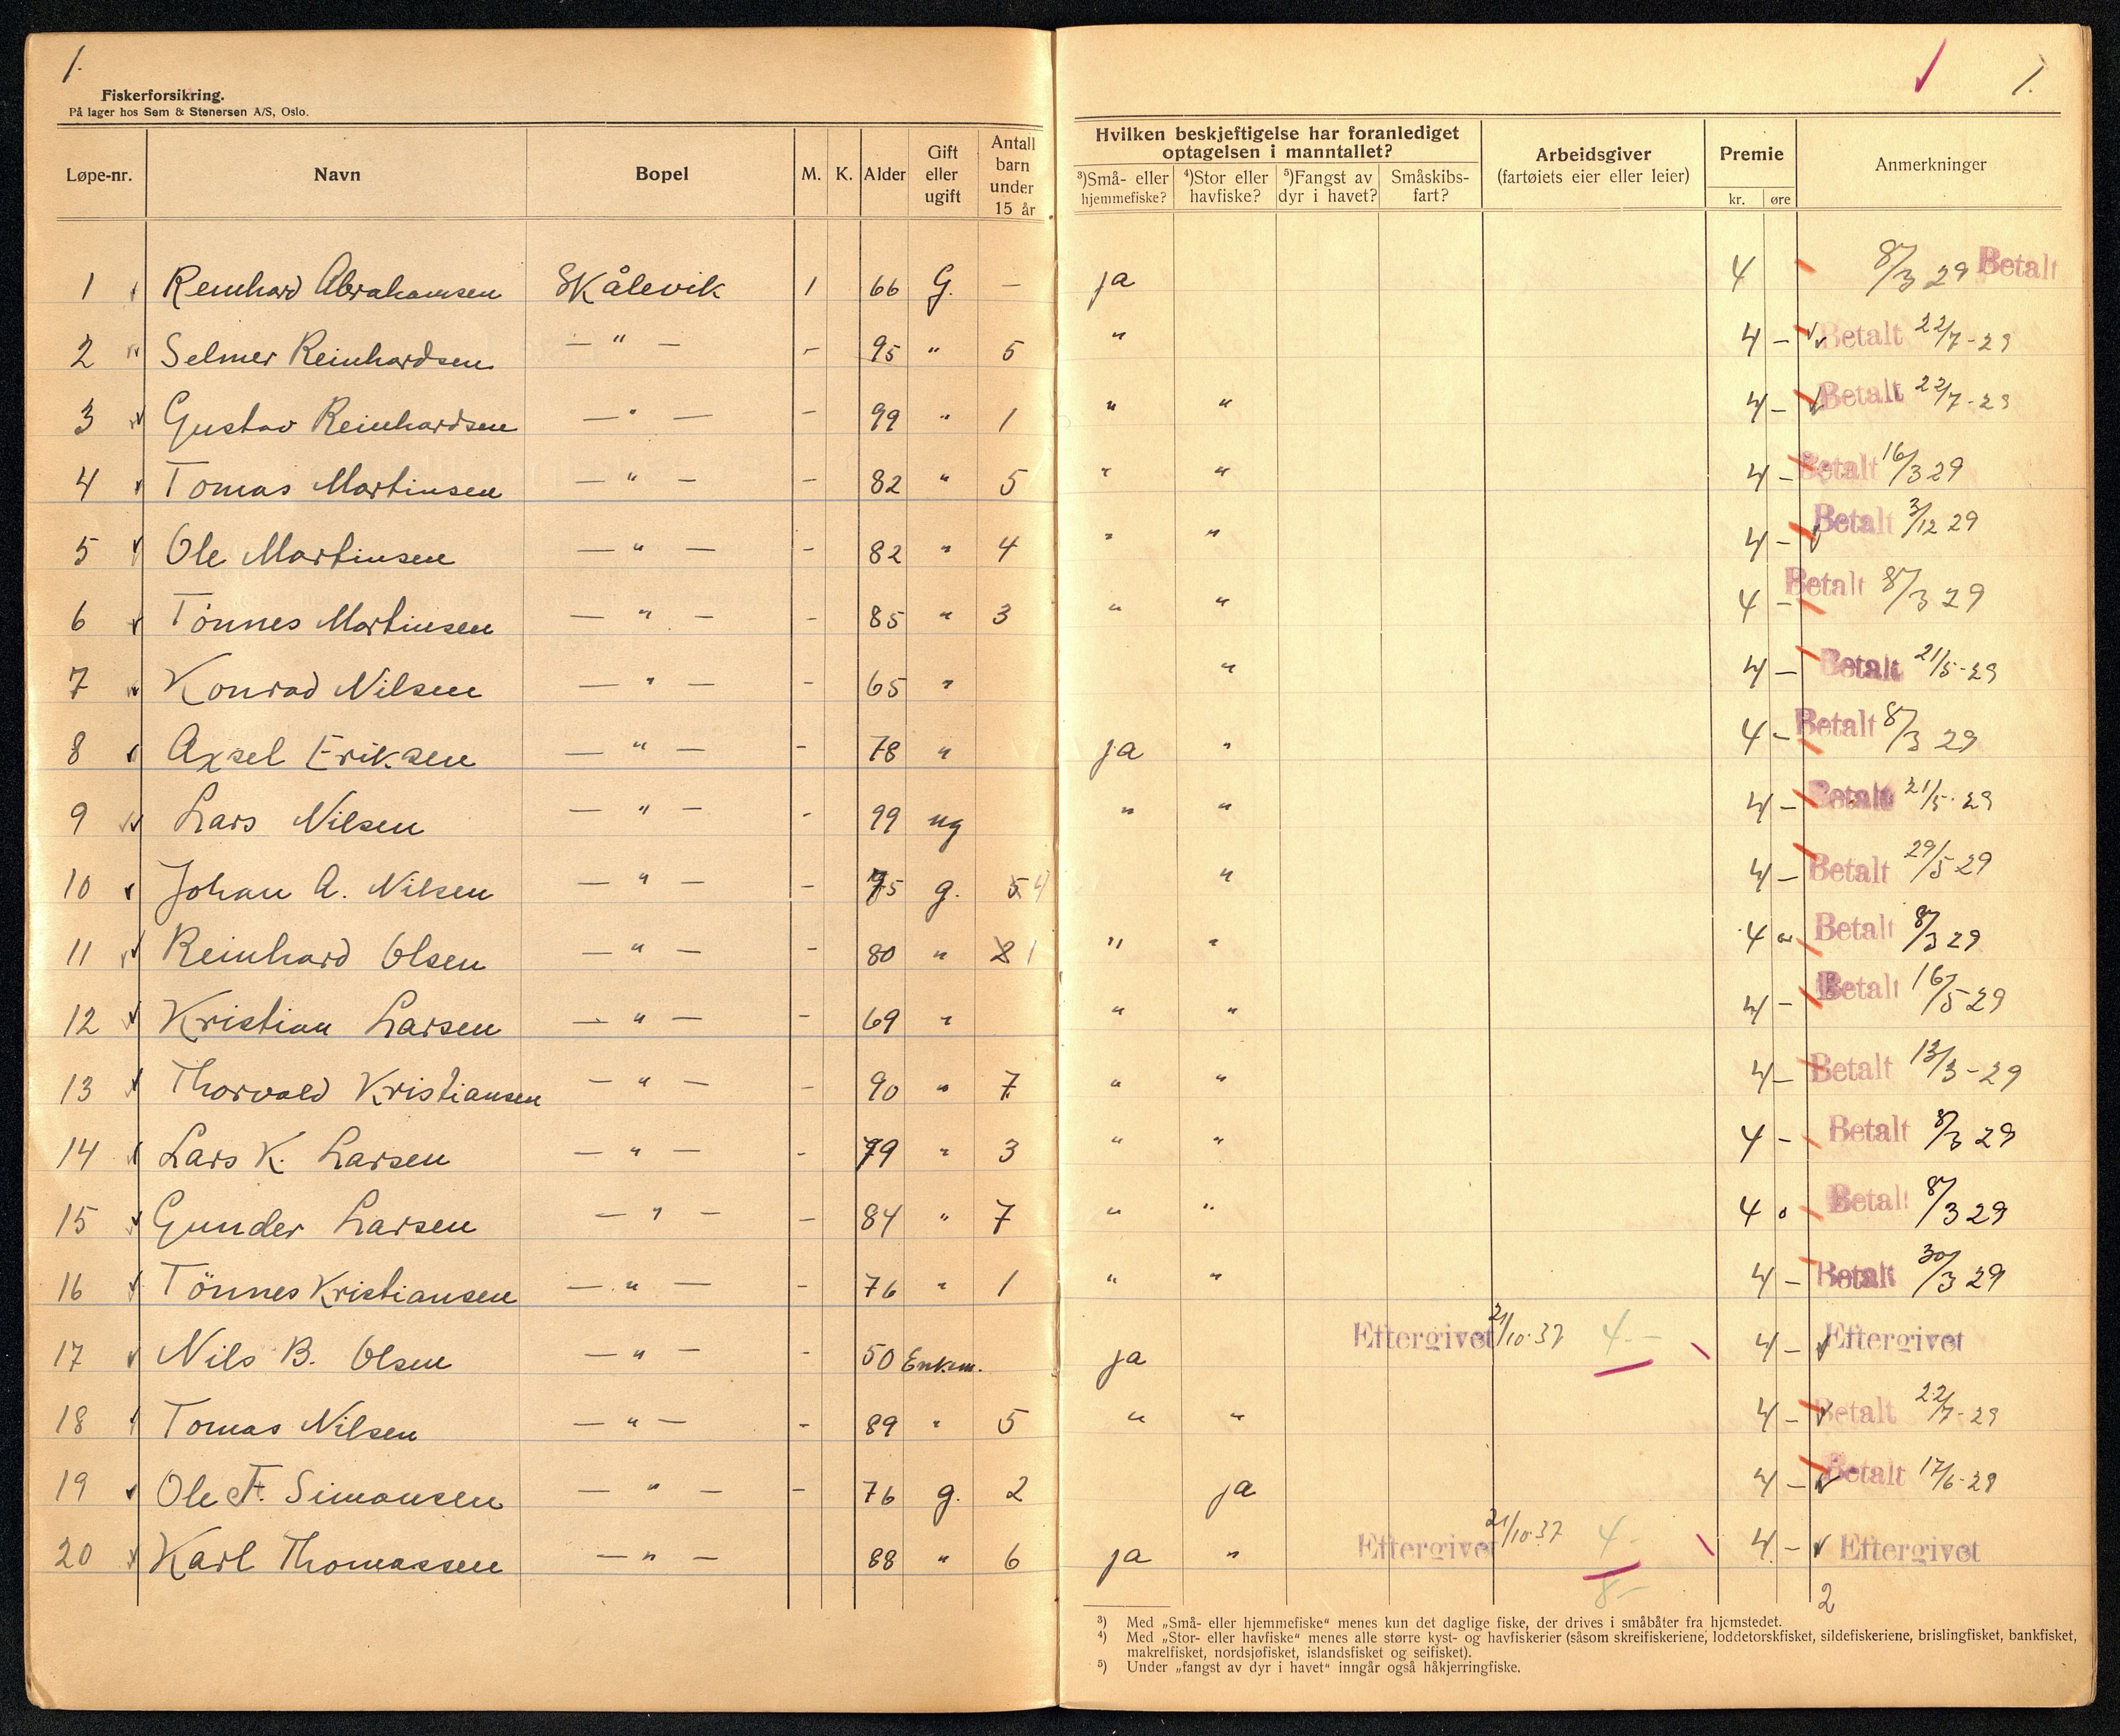 1.
1.
Fiskerforsikring.
På lager hos Sem & Stenersen A/S, Oslo.
Løpe-nr. Navn Bopel M. K. Alder Gift eller ugift Antall barn under 15 år
Hvilken beskjeftigelse har foranlediget optagelsen i manntallet?
³)Små- eller hjemmefiske? ⁴)Stor eller havfiske? ⁵)Fangst av dyr i havet? Småskibsfart? Arbeidsgiver (fartøiets eier eller leier) Premie kr. øre Anmerkninger
1 Reinhard Abrahamsen Skålevik 1 66 G. — ja 4 8/3 29 Betalt
2 Selmer Reinhardsen — " — - 95 " 5 " 4 - Betalt 22/7-29
3 Gustav Reinhardsen — " — - 99 " 1 " " 4 - Betalt 22/7-29
4 Tomas Martinsen — " — - 82 " 5 " " 4 - Betalt 16/3 29
5 Ole Martinsen — " — - 82 " 4 " " 4 - Betalt 3/12 29
6 Tönnes Martinsen — " — - 85 " 3 " " 4 - Betalt 8/3 29
7 Konrad Nilsen — " — - 65 " " 4 - Betalt 21/5-29
8 Axsel Eriksen — " — - 78 " ja " 4 - Betalt 8/3 29
9 Lars Nilsen — " — - 99 ug " " 4 - Betalt 21/5-29
10 Johan A. Nilsen — " — - 75 g. 5 4 " 4 - Betalt 29/5 29
11 Reinhard Olsen — " — - 80 " 2 1 " " 4 " Betalt 8/3 29
12 Kristian Larsen — " — - 69 " " " 4 - Betalt 16/5 29
13 Thorvald Kristiansen — " — - 90 " 7 " " 4 - Betalt 13/3-29
14 Lars K. Larsen — " — - 79 " 3 " " 4 - Betalt 8/3 29
15 Gunder Larsen — " — - 84 " 7 " " 4 " Betalt 8/3 29
16 Tönnes Kristiansen — " — - 76 " 1 " " 4 - Betalt 30/3 29
17 Nils B. Olsen — " — - 50 Enkm. ja Eftergivet 21/10.37 4.- 4 - Eftergivet
18 Tomas Nilsen — " — - 89 " 5 " " 4 - Betalt 22/7-29
19 Ole F. Simonsen — " — - 76 g. 2 ja 4 - Betalt 17/6-29
20 Karl Thomassen — " — 88 " 6 ja " Eftergivet 21/10.37 4.- 4 - Eftergivet
8- 2
³) Med „Små- eller hjemmefiske" menes kun det daglige fiske, der drives i småbåter fra hjemstedet.
⁴) Med „Stor- eller havfiske" menes alle større kyst- og havfiskerier (såsom skreifiskeriene, loddetorskfisket, sildefiskeriene, brislingfisket, bankfisket,
makrelfisket, nordsjøfisket, islandsfisket og seifisket).
⁵) Under „fangst av dyr i havet" inngår også håkjerringfiske.